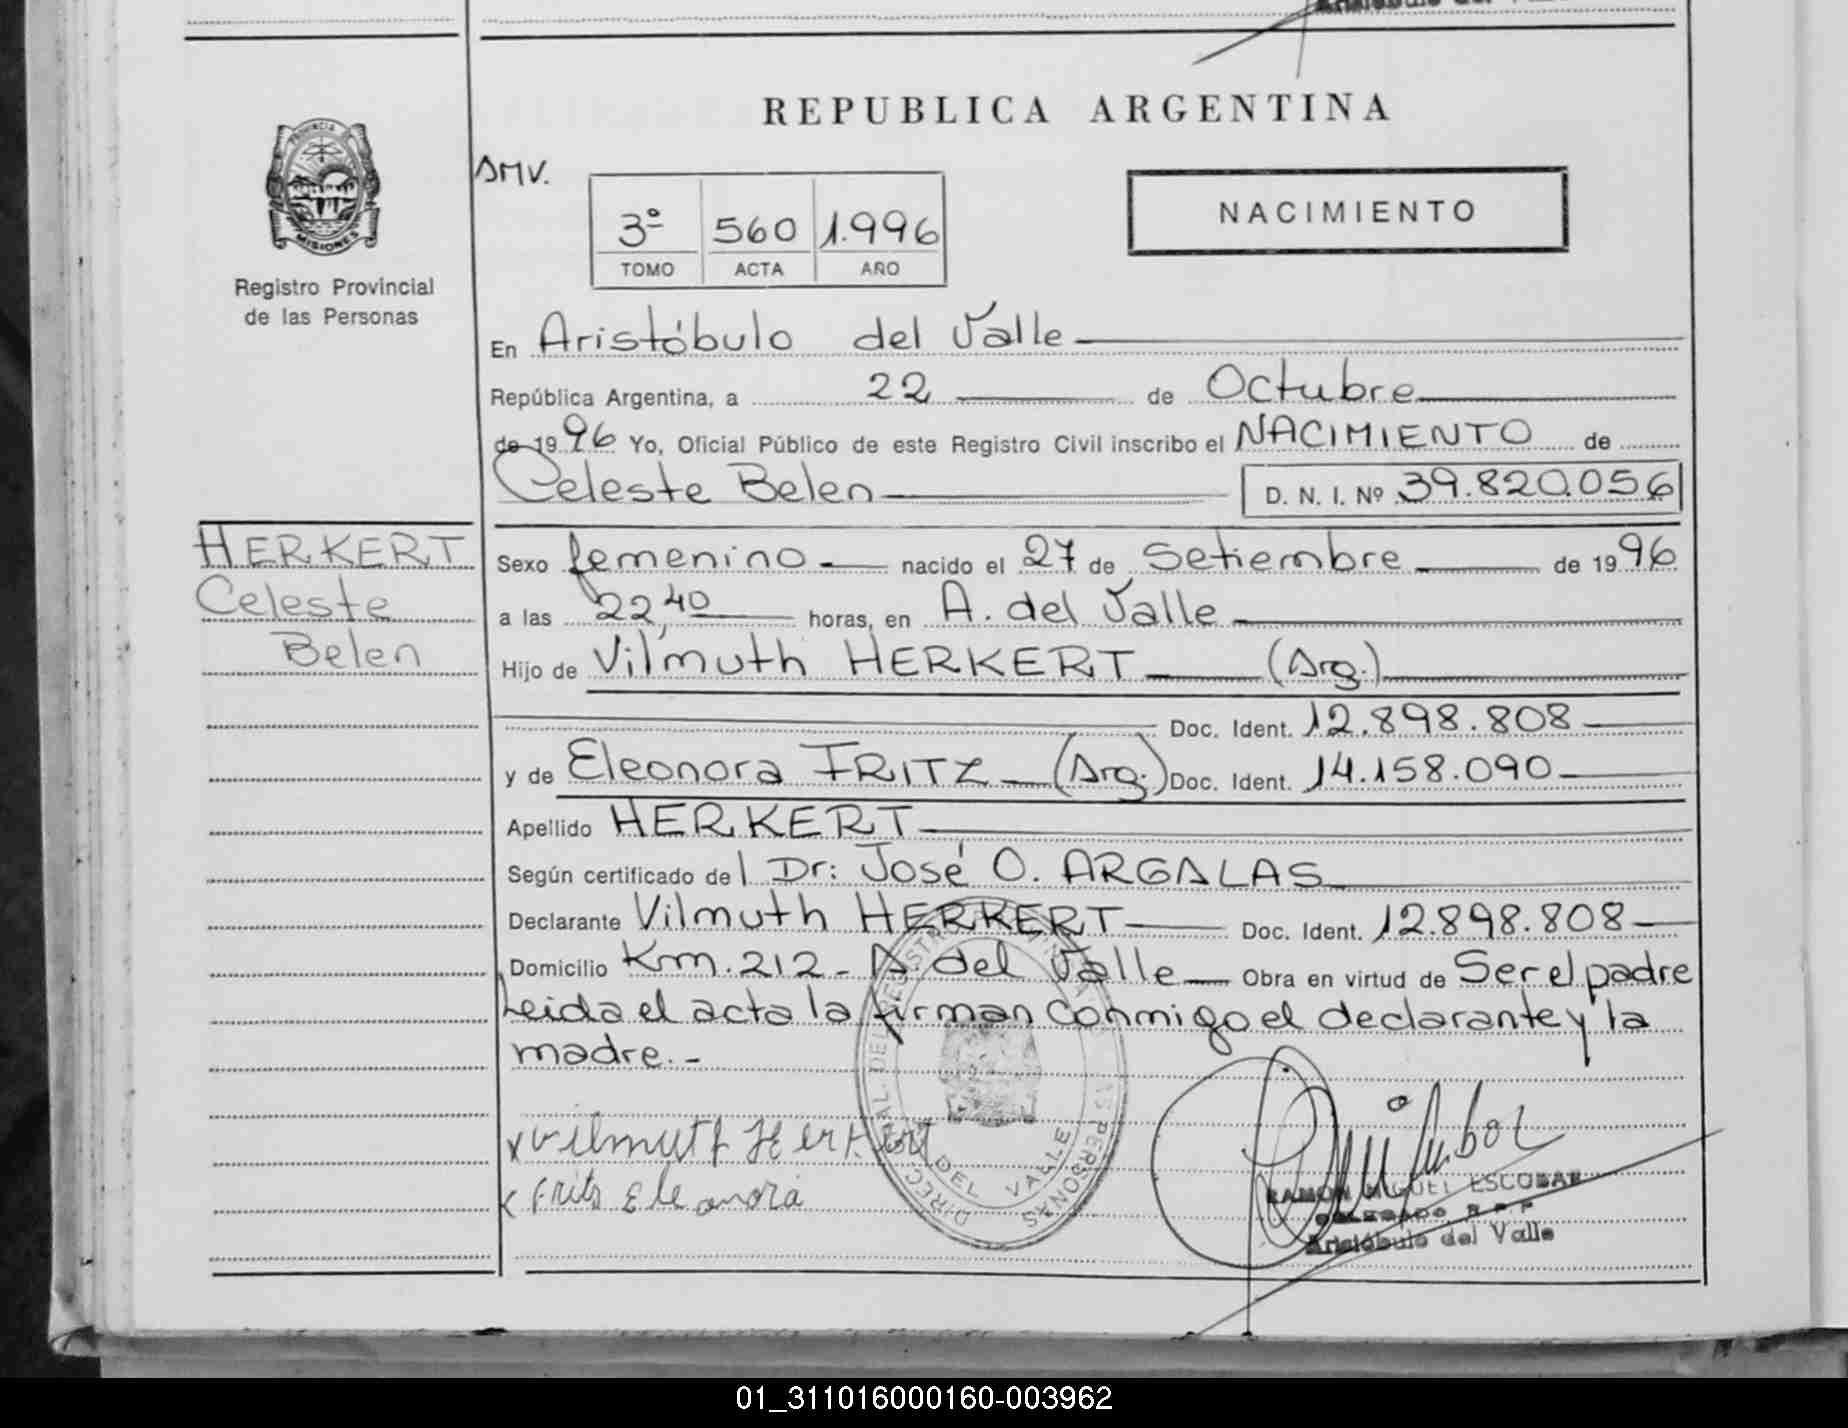 REPUBLICA ARGENTINA
PROVINCIA
MISIONES
Registro Provincial
de las Personas
SMV.
3º 560 1.996
TOMO ACTA AÑO
NACIMIENTO
En Aristóbulo del Valle
República Argentina, a 22 de Octubre
de 1996 Yo, Oficial Público de este Registro Civil inscribo el NACIMIENTO de
Celeste Belen D. N. I. Nº 39.820.056
HERKERT
Celeste
Belen
Sexo femenino nacido el 27 de Setiembre de 1996
a las 22,40 horas, en A. del Valle
Hijo de Vilmuth HERKERT (Arg.)
Doc. Ident. 12.898.808
y de Eleonora FRITZ (Arg.) Doc. Ident. 14.158.090
Apellido HERKERT
Según certificado del Dr: José O. ARGALAS
Declarante Vilmuth HERKERT Doc. Ident. 12.898.808
Domicilio Km. 212 - A. del Valle Obra en virtud de Ser el padre
Leida el acta la firman conmigo el declarante y la
madre.-
x Vilmuth Herkert
x Frits Eleonora
DEL VALLE
RAMON MIGUEL ESCOBAR
DELEGADO R.P.P
Aristóbulo del Valle
01_311016000160-003962